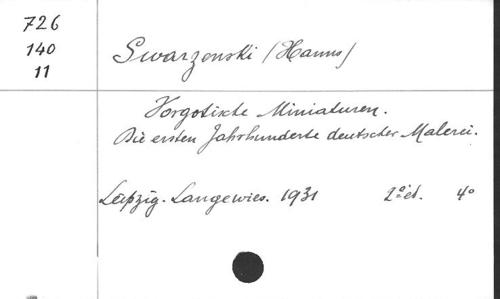 726
140
11
Swarzenski (Hanns)
Vorgotische Miniaturen.
Die ersten Jahrhunderte deutscher Malerei.
Leipzig. Langewies. 1931 2º éd. 4º